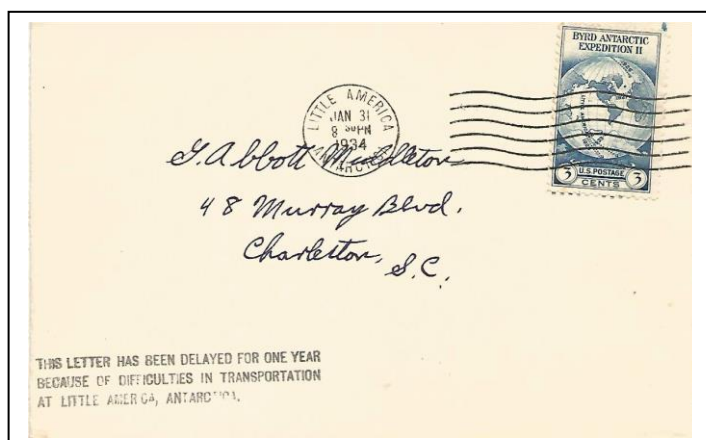 BYRD ANTARCTIC
EXPEDITION II
U.S. POSTAGE
3 CENTS 3
LITTLE AMERICA
JAN 31
8 30 PM
1934
ANTARCTICA
G. Abbott Middleton
48 Murray Blvd.
Charleston, S.C.
THIS LETTER HAS BEEN DELAYED FOR ONE YEAR
BECAUSE OF DIFFICULTIES IN TRANSPORTATION
AT LITTLE AMERICA, ANTARCTICA.